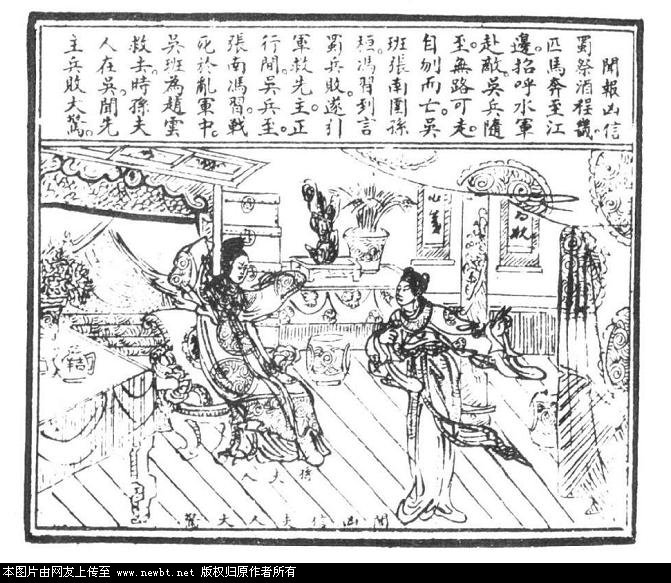 聞報凶信
蜀祭酒程畿。
匹馬奔至江
邊。招呼水軍
赴敵。吳兵隨
至。無路可走。
自刎而亡。吳
班張南圍孫
桓。馮習到言
蜀兵敗。遂引
軍救先主。正
行間。吳兵至。
張南馮習。戰
死於亂軍中。
吳班為趙雲
救去。時孫夫
人在吳。聞先
主兵敗大驚
孫夫人
聞凶信夫人大驚
本图片由网友上传至 www.newbt.net 版权归原作者所有